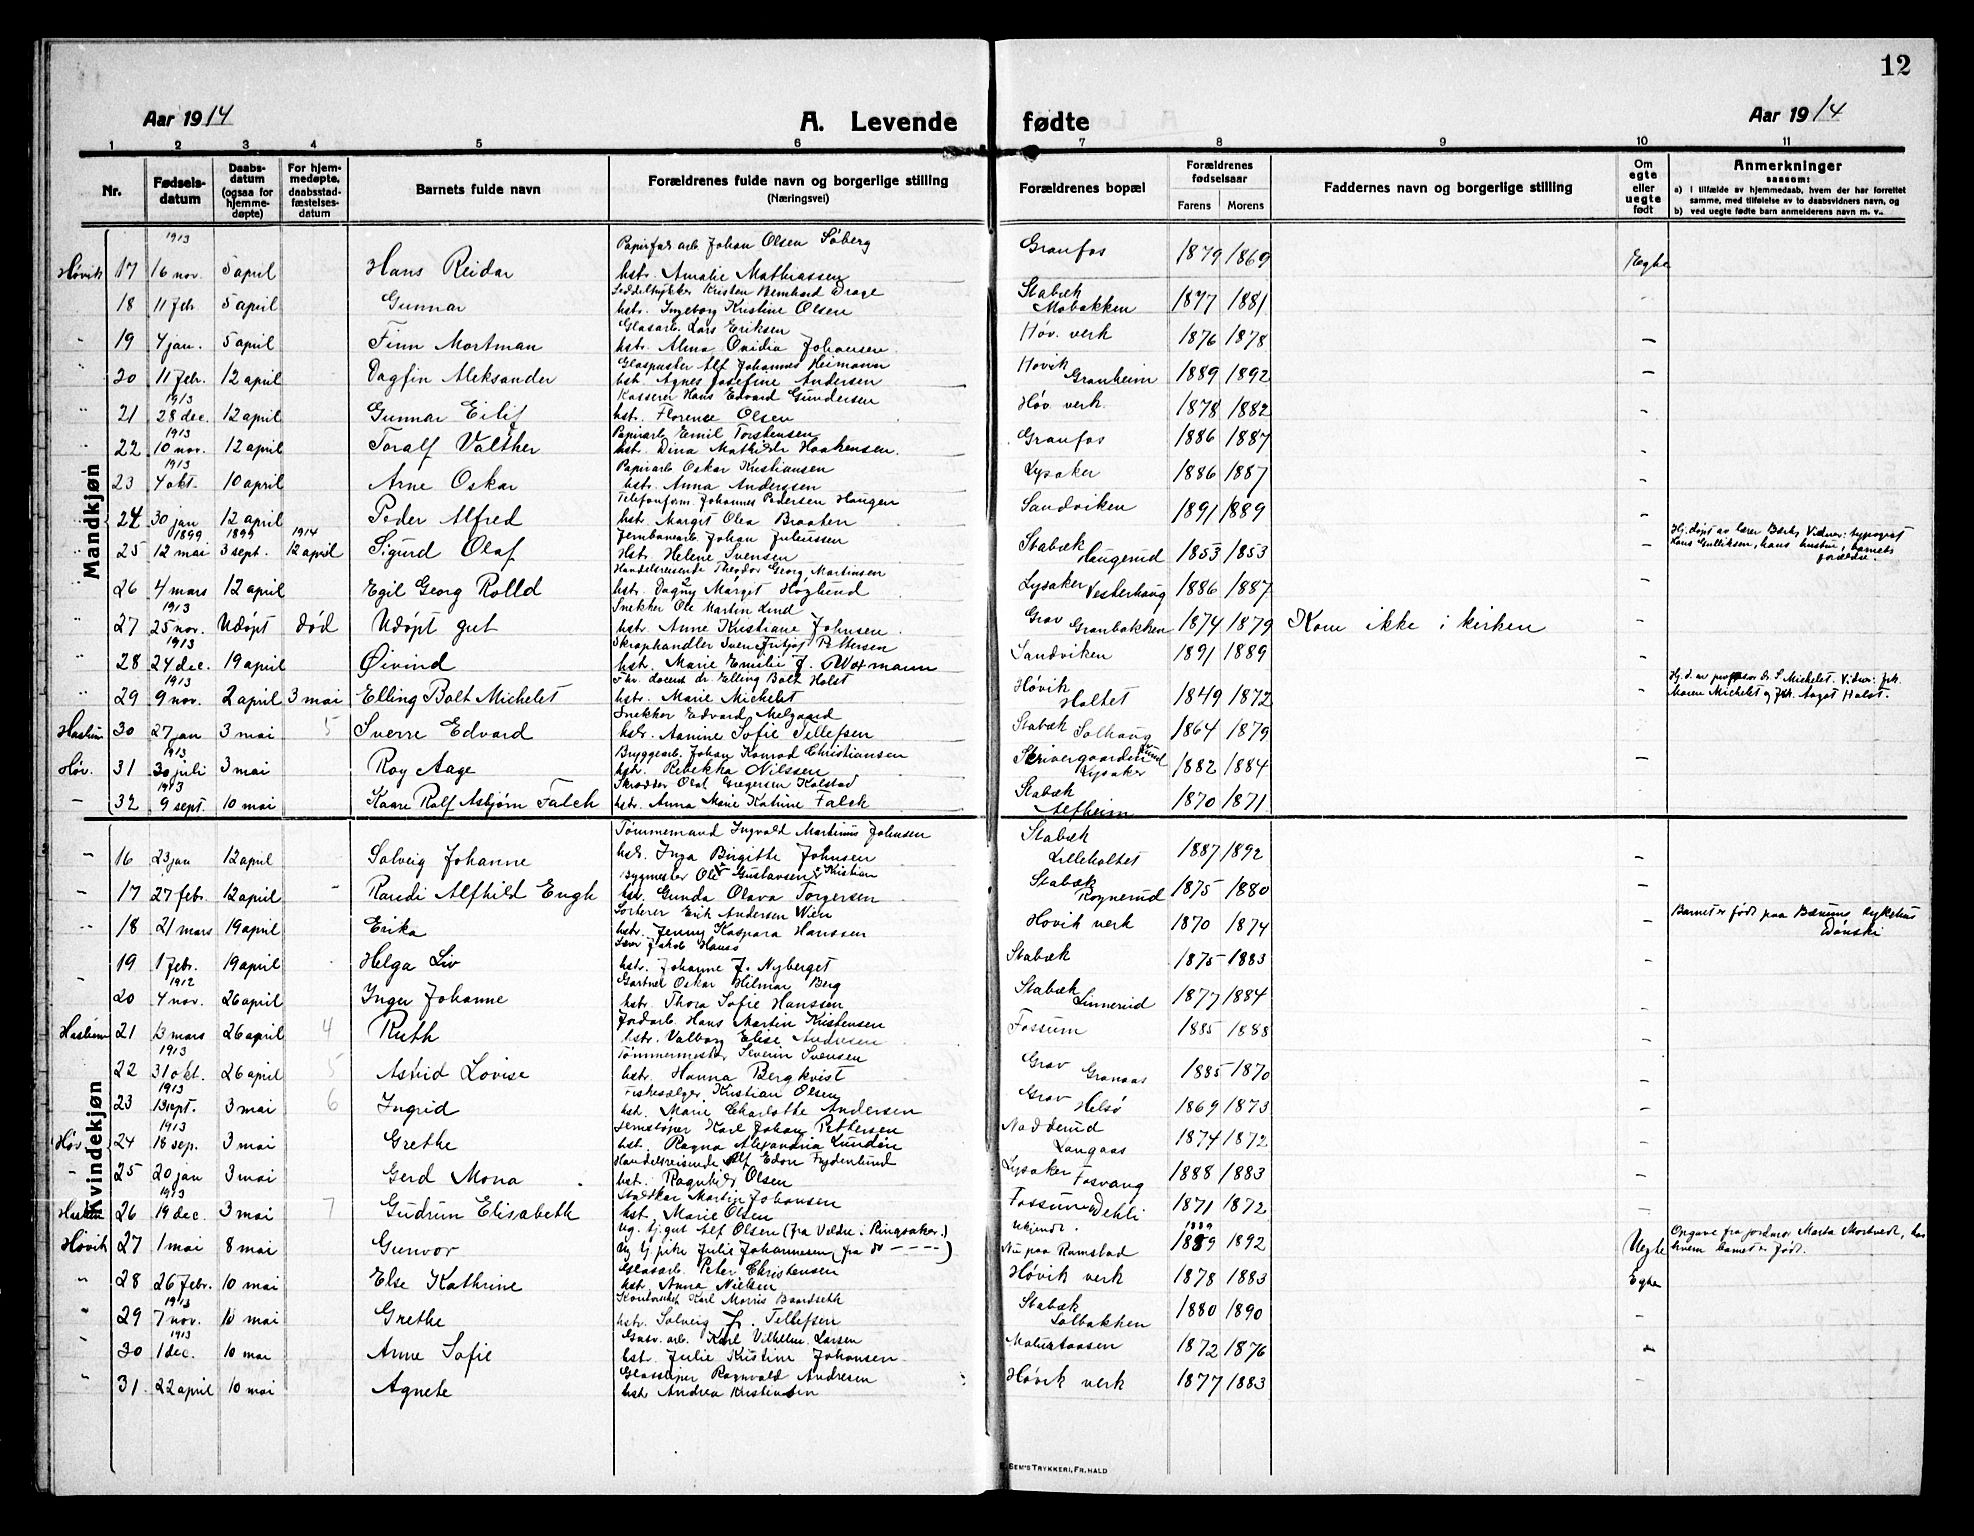 12
Aar 1914 A. Levende fødte Aar 1914
1 2 3 4 5 6 7 8 9 10 11
Nr. Fødsels-datum Daabs-datum (ogsaa for hjemme-døpte) For hjem-medøpte, daabsstad-fæstelses-datum Barnets fulde navn Forældrenes fulde navn og borgerlige stilling (Næringsvei) Forældrenes bopæl Forældrenes fødselsaar Farens Morens Faddernes navn og borgerlige stilling Om egte eller uegte født Anmerkninger saasom:
a) I tilfælde av hjemmedaab, hvem der har forrettet samme, med tilføielse av to daabsvidners navn, og
b) ved uegte fødte barn anmelderens navn m. v.
Mandkjøn
1913 Papirfab.arb. Johan Olsen Söberg Granfos
Høvik 17 16 nov. 5 april Hans Reidar hstr. Amalie Mathiassen 1879 1869 Egte
Kristen Bernhard Drage Stabæk
18 11 feb. 5 april Gunnar hstr. Ingeborg Kristine Olsen Mobakken 1877 1881 -
Glasarb. Lars Eriksen
" 19 4 jan. 5 april Finn Mortman hstr. Alma Ovidia Johansen Høv. verk 1876 1878 -
Glaspuster Alf Johannes Heimann Høvik
" 20 11 feb. 12 april Dagfin Aleksander hst. Agnes Josefine Andersen Granheim 1889 1892 -
1913 Kasserer Hans Edvard Gundersen
" 21 28 dec. 12 april Gunnar Eilif hstr. Florence Olsen Høv. verk. 1878 1882 -
1913 Papirarb. Emil Torstensen
" 22 10 nov. 12 april Toralf Valther hst. Dina Mathilde Haakensen. Granfos 1886 1887 -
1913 Papirarb. Oskar Kristiansen
" 23 4 okt. 10 april Arne Oskar hstr. Anna Anderssen Lysaker 1886 1887 -
Telefonform. Johannes Pedersen Haugen
" 24 30 jan 12 april Peder Alfred hstr. Margit Olea Braaten Sandviken 1891 1889 -
1899 1899 1914 Jernbanearb. Johan Juliussen Stabæk
" 25 12 mai 3 sept. 12 april Sigurd Olaf Hstr. Helene Svensen Haugerud 1853 1853 - Hj. døpt av lærer Vidner: typograf Hans Gulliksen, hans hustru, barnets forældre.
Handelsreisende Theodor Georg Martinsen Lysaker
" 26 4 mars 12 april Egil Georg Rolld hstr. Dagny Margit Høglund Vesterhaug 1886 1887 -
1913 Snekker Ole Martin Lund Grav
" 27 25 nov. Udøpt død Udøpt gut hstr. Anne Kristiane Johnsen. Granbakken 1874 1879 Kom ikke i kirken -
1913 Skraphandler Sven Fritjof Pettersen
" 28 24 dec. 19 april Øivind hstr. Marie Emilie J. Sandviken 1891 1889 -
1913 Fhv. docent dr. Elling Bolt Holst Høvik
" 29 9 nov. 2 april 3 mai Elling Bolt Michelet hstr. Marie Michelet Holtet 1849 1872 - Hj. d. av professor dr. S. Michelet. Vidner: frk. Maren Michelet og frk. Aagot Holst.
Snekker Edvard Melgaard
Haslum 30 27 jan 3 mai 5 Sverre Edvard hstr. Sofie Tellefsen Stabæk Solhaug 1864 1879 -
1913 Bryggearb. Johan Konrad Christiansen Skrivergaarden
Høv. 31 30 juli 3 mai Roy Aage hstr. Rebekka Nilssen Lysaker 1882 1884 -
1913 Skrædder Olaf Gregersen Kolstad Stabæk
- 32 9 sept. 10 mai Kaare Rolf Asbjørn Falch hstr. Anna Marie Katrine Falck Alfheim 1870 1871 -
Kvindekjøn
Tømmermand Ingvald Martinius Johnsen Stabæk
" 16 23 jan 12 april Solveig Johanne hstr. Inga Birgitte Johnsen Lilleholtet 1887 1892 -
Bygmester Ole Gustavsen Kristian Stabæk
" 17 27 febr. 12 april Randi Alfhild Engh hst. Gunda Olava Torgersen Rognerud 1875 1880 -
Sorterer Erik Andersen Wien
" 18 21 mars 19 april Erika hstr. Jenny Kaspara Hanssen Høvik verk 1870 1874 - Barnet er født paa Bærums sykehus
Jakob Hanss
19 1 febr. 19 april Helga Liv hstr. Johanne J. Nyberget Stabæk 1875 1883 -
1912 Gartner Oskar Hilmar Berg Stabæk
" 20 4 nov. 26 april Inger Johanne hstr. Thora Sofie Hanssen Linnerud 1877 1884 -
Jordarb. Hans Martin Kristensen
Haslum 21 13 mars 26 april 4 Ruth hstr. Valborg Elise Andresen Fossum 1885 1888 -
1913 Tømmermester Severin Svensen Grav
22 31 okt. 26 april 5 Astrid Lovise hstr. Hanna Bergkvist Granaas 1885 1870 -
1913 Fiskesælger Kristian Olsen Grav
23 13 sept. 3 mai 6 Ingrid hst. Marie Charlotte Andersen Helsø 1869 1873 -
1913 Karl Johan Pettersen Nadderud
Høv. 24 18 sep. 3 mai Grethe hst. Ragna Alexandria Lundén Langaas 1874 1872 -
Handelsreisende Alf Edon Frydenlund
" 25 20 jan 3 mai Gerd Mona hst. Ragnhild Olsen Lysaker Fosvang 1888 1883 -
1913 Staldkar Martin Johansen
Haslum 26 19 dec. 3 mai 7 Gudrun Elisabeth hst. Marie Olsen Fossum Dehli 1871 1872 -
Ug. tj.gut Alf Olsen (fra Veldre i Ringsaker.) Ukjendt. 1889
Høvik 27 1 mai 8 mai Gunvor Ug tj. pike Julie Johannesen (fra do - - - -) Nu paa Ramstad 1889 1892 Uegte Opgave fra jordmor Marta Mortvedt, hos hvem barnet er født.
Glasarb. Peter Christensen
" 28 26 febr. 10 mai Else Kathrine hst. Anna Nielsen Høvik verk 1878 1883 Egte
1913 Kontorchef Karl Morris Baardseth Stabæk
" 29 7 nov. 10 mai Grethe hstr. Solveig J. Tellefsen Solbakken 1880 1890 -
1913 Karl Vilhelm Larsen
" 30 1 dec. 10 mai Anne Sofie hst. Julie Kristine Johansen 1872 1876 -
Ragnvald Andresen
" 31. 22 april 10 mai Agnete hst. Andrea Kristensen Høvik verk 1877 1883
SEM'S TRYKKERI, FR.HALD